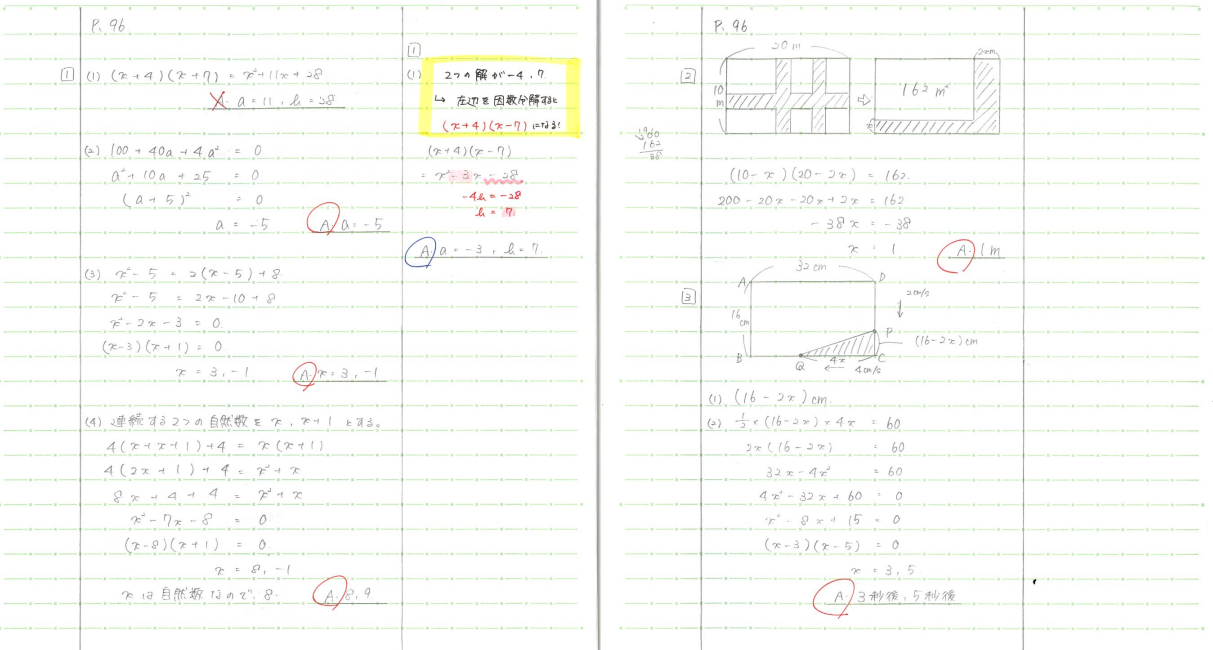 P. 96
1 (1) (x+4)(x+7) = x²+11x+28
A. a=11, b=28
(2) 100+40a+4a² = 0
a²+10a+25 = 0
(a+5)² = 0
a = -5
A. a=-5
(3) x²-5 = 2(x-5)+8
x²-5 = 2x-10+8
x²-2x-3 = 0
(x-3)(x+1) = 0
x = 3, -1
A. x=3, -1
(4) 連続する2つの自然数をx, x+1とする。
4(x+x+1)+4 = x(x+1)
4(2x+1)+4 = x²+x
8x+4+4 = x²+x
x²-7x-8 = 0
(x-8)(x+1) = 0
x = 8, -1
xは自然数なので, 8
A. 8, 9
1
(1) 2つの解が-4, 7
↳ 左辺を因数分解すると
(x+4)(x-7)になる!
(x+4)(x-7)
= x²-3x-28
-4b=-28
b=7
A. a=-3, b=7
P. 96
2
20m
10m
2xm
162m²
x
200
162
38
(10-x)(20-2x) = 162
200-20x-20x+2x = 162
-38x = -38
x = 1
A. 1m
3
32cm
A
D
16cm
2cm/s
P
(16-2x)cm
B
Q
4x
C
4cm/s
(1) (16-2x)cm
(2) 1/2×(16-2x)×4x = 60
2x(16-2x) = 60
32x-4x² = 60
4x²-32x+60 = 0
x²-8x+15 = 0
(x-3)(x-5) = 0
x = 3, 5
A. 3秒後, 5秒後